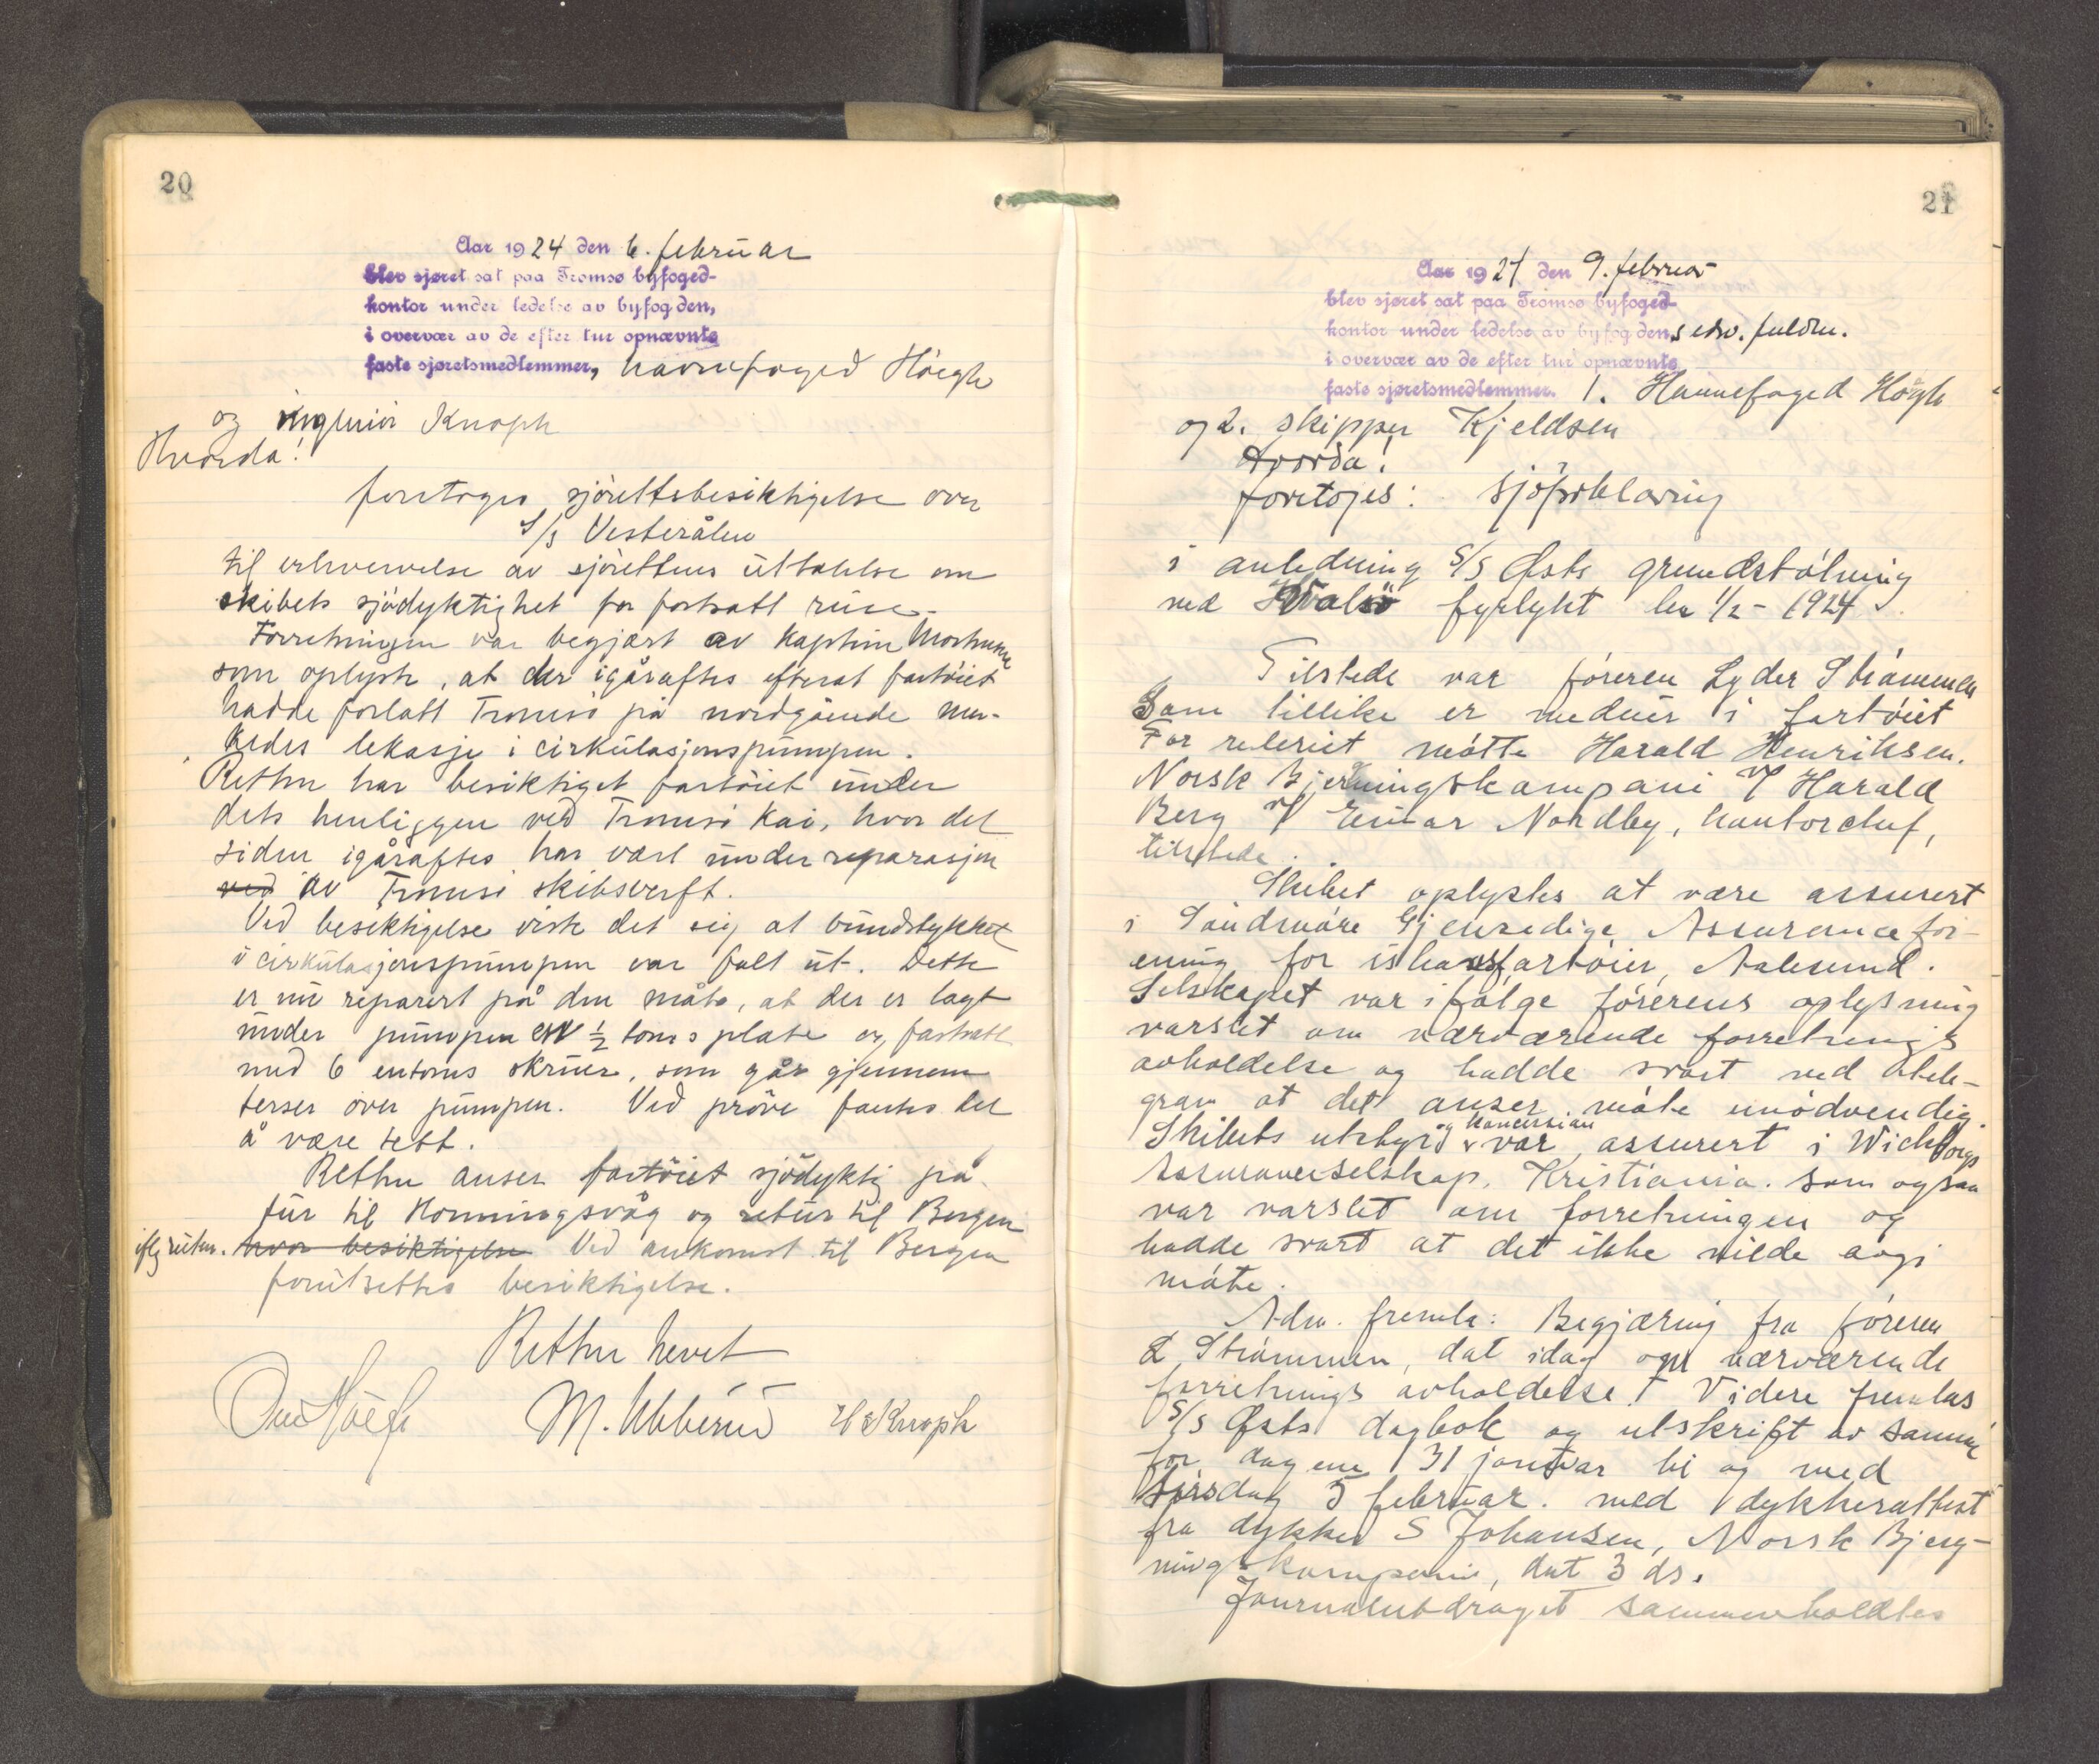 20
Aar 1924 den 6. februar
blev sjøret sat paa Tromsø byfoged-
kontor under ledelse av byfogden,
i overvær av de efter tur opnævnte
faste sjøretsmedlemmer, havnefoged Höegh
og ingeniör Knoph
Hvorda!
foretoges sjörettsbesiktigelse over
S/s Vesterålen
til erhvervelse av sjörettens uttalelse om
skibets sjödyktighet for fortsatt reise.
Forretningen var begjært av kaptein Mortensen
som oplyste, at der igåraftes efterat fartöiet
hadde forlatt Tromsö på nordgående mer-
kedes lekasje i cirkulasjonspumpen.
Retten har besiktiget fartöiet under
dets henliggen ved Tromsö kai, hvor det
siden igåraftes har vært under reparasjon
ved av Tromsö skibsverft.
Ved besiktigelse viste det sig at bundstykket
i cirkulasjonspumpen var falt ut. Dette
er nu reparert på den måte, at der er lagt
under pumpen en ½ toms plate og fastsatt
med 6 entoms skruer, som går gjennem
terser over pumpen. Ved pröve fantes det
å være tett.
Retten anser fartöiet sjödyktig på
tur til Honningsvåg og retur til Bergen
iflg ruten. hvor besiktigelse Ved ankomst til Bergen
forutsettes besiktigelse.
Retten hevet
M. Ubberud H Knoph
21
Aar 1924 den 9. februar
blev sjøret sat paa Tromsø byfoged-
kontor under ledelse av byfogdens edsv. fuldm.
i overvær av de efter tur opnævnte
faste sjøretsmedlemmer. 1. Havnefoged Høgh
og 2. skipper Kjeldsen
Hvorda!
foretoges: sjöforklaring
i anledning S/S Østs grundstötning
ved Kvalsö fyrlykt den 1/2 - 1924.
Tilstede var föreren Lyder Strömmen
som tillike er medeier i fartöiet
For rederiet mötte Harald Henriksen.
Norsk Bjerningskompani v/ Harald
Berg v/ Einar Nordby, kontorchef,
tilstede.
Skibet oplystes at være assurert
i Söndmöre Gjensidige Assurancefor-
ening for ishavsfartöier, Aalesund.
Selskapet var ifölge förerens oplysning
varslet om nærværende forretnings
avholdelse og hadde svart ved tele-
gram at det anser möte unödvendig.
Skibets utstyr og koncession var assurert i Wichborgs
Assuranceselskap, Kristiania. som ogsaa
var varslet om forretningen og
hadde svart at det ikke vilde avgi
möte.
Adm. fremla: Begjæring fra föreren
L Strömmen, dat idag om nærværende
forretnings avholdelse. Videre fremlas
S/S Østs dagbok og utskrift av samme
for dagene 31 januar til og med
tirsdag 5 februar. med dykkerattest
fra dykker S Johansen, Norsk Bjerg-
ningskompani, dat 3 ds.
Journalutdraget sammenholdtes